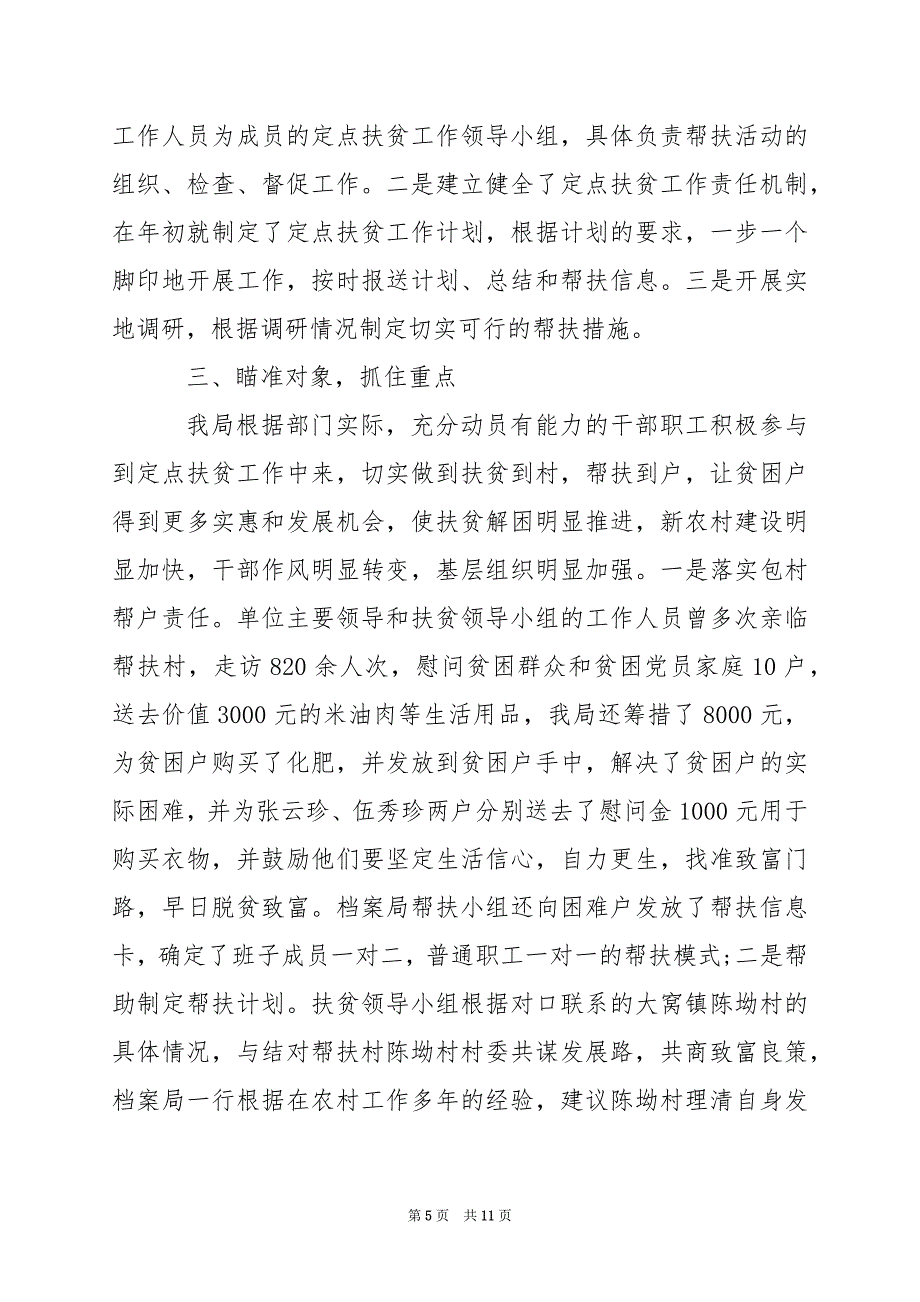 工作人员为成员的定点扶贫工作领导小组，具体负责帮扶活动的
组织、检查、督促工作。二是建立健全了定点扶贫工作责任机制，
在年初就制定了定点扶贫工作计划，根据计划的要求，一步一个
脚印地开展工作，按时报送计划、总结和帮扶信息。三是开展实
地调研，根据调研情况制定切实可行的帮扶措施。
三、瞄准对象，抓住重点
我局根据部门实际，充分动员有能力的干部职工积极参与
到定点扶贫工作中来，切实做到扶贫到村，帮扶到户，让贫困户
得到更多实惠和发展机会，使扶贫解困明显推进，新农村建设明
显加快，干部作风明显转变，基层组织明显加强。一是落实包村
帮户责任。单位主要领导和扶贫领导小组的工作人员曾多次亲临
帮扶村，走访 820 余人次，慰问贫困群众和贫困党员家庭 10 户，
送去价值 3000 元的米油肉等生活用品，我局还筹措了 8000 元，
为贫困户购买了化肥，并发放到贫困户手中，解决了贫困户的实
际困难，并为张云珍、伍秀珍两户分别送去了慰问金 1000 元用于
购买衣物，并鼓励他们要坚定生活信心，自力更生，找准致富门
路，早日脱贫致富。档案局帮扶小组还向困难户发放了帮扶信息
卡，确定了班子成员一对二，普通职工一对一的帮扶模式;二是帮
助制定帮扶计划。扶贫领导小组根据对口联系的大窝镇陈坳村的
具体情况，与结对帮扶村陈坳村村委共谋发展路，共商致富良策，
档案局一行根据在农村工作多年的经验，建议陈坳村理清自身发
第 5 页 共 11 页